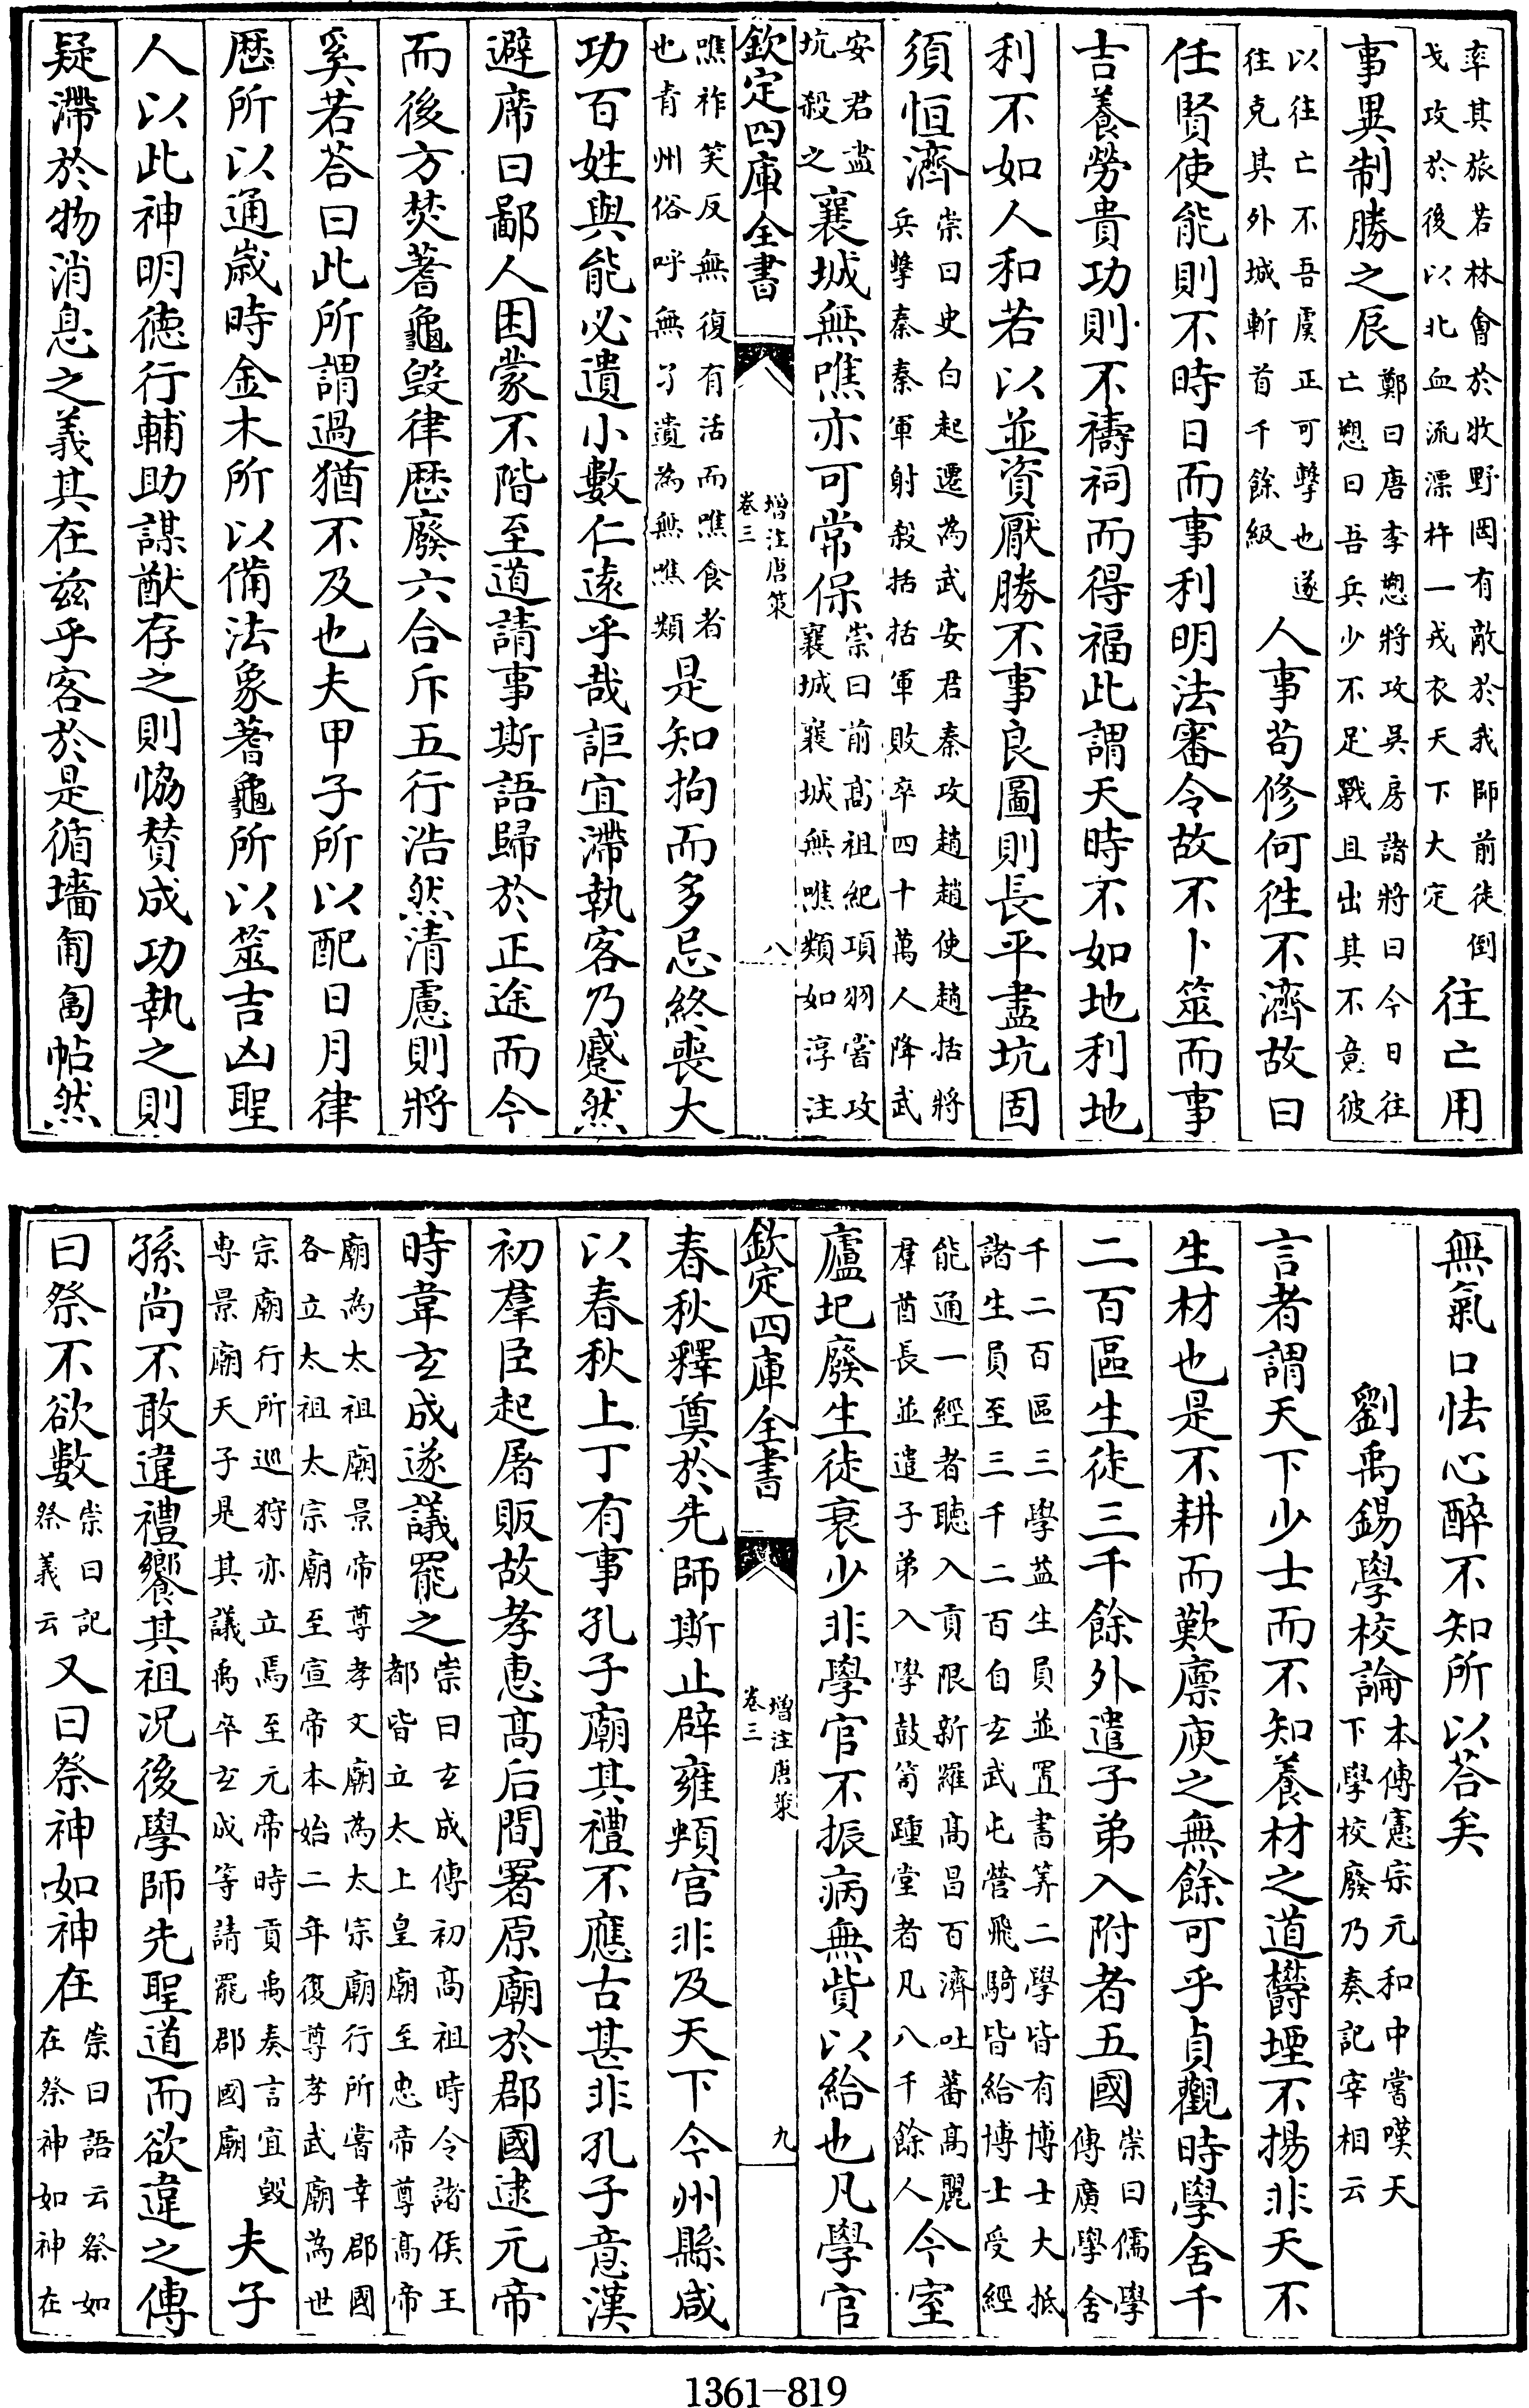 率其旅若林會於牧野罔有敵於我師前徒倒戈攻於後以北血流漂杵一戎衣天下大定往亡用
事異制勝之辰鄭曰唐李愬將攻吳房諸將曰今日往亡愬曰吾兵少不足戰且出其不意彼
以往亡不吾虞正可擊也遂往克其外城斬首千餘級人事茍修何徃不濟故曰
任賢使能則不時日而事利明法審令故不卜筮而事
吉養勞貴功則不禱祠而得福此謂天時不如地利地
利不如人和若以並資厭勝不事良圖則長平盡坑固
須恒濟崇曰史白起遷為武安君秦攻趙趙使趙括將兵擊秦秦軍射殺括括軍敗卒四十萬人降武
安君盡坑殺之襄城無噍亦可常保崇曰前髙祖紀項羽嘗攻襄城襄城無噍類如淳注
欽定四庫全書 增注唐策 卷三 八
噍祚笑反無復有活而噍食者也青州俗呼無孑遺為無噍類是知拘而多忌終喪大
功百姓與能必遺小數仁遠乎哉詎宜滯執客乃蹙然
避席曰鄙人困蒙不階至道請事斯語歸於正途而今
而後方焚蓍龜毀律厯廢六合斥五行浩然清慮則將
奚若荅曰此所謂過猶不及也夫甲子所以配日月律
厯所以通嵗時金木所以備法象蓍龜所以筮吉凶聖
人以此神明徳行輔助謀猷存之則恊賛成功執之則
疑滯於物消息之義其在兹乎客於是循墻匍匐帖然
無氣口怯心醉不知所以荅矣
劉禹錫學校論本傳憲宗元和中嘗嘆天下學校廢乃奏記宰相云
言者謂天下少士而不知養材之道欝堙不揚非天不
生材也是不耕而歎廪庾之無餘可乎貞觀時學舍千
二百區生徒三千餘外遣子弟入附者五國崇曰儒學傳廣學舍
千二百區三學益生員並置書筭二學皆有博士大抵諸生員至三千二百自玄武屯營飛騎皆給博士受經
能通一經者聽入貢限新羅髙昌百濟吐蕃髙麗羣酋長並遣子弟入學鼓笥踵堂者凡八千餘人今室
廬圯廢生徒衰少非學官不振病無貲以給也凡學官
欽定四庫全書 增注唐策 卷三 九
春秋釋奠於先師斯止辟雍頖宫非及天下今州縣咸
以春秋上丁有事孔子廟其禮不應古甚非孔子意漢
初羣臣起屠販故孝惠髙后間署原廟於郡國逮元帝
時韋玄成遂議罷之崇曰玄成傳初髙祖時令諸侯王都皆立太上皇廟至忠帝尊髙帝
廟為太祖廟景帝尊孝文廟為太宗廟行所嘗幸郡國各立太祖太宗廟至宣帝本始二年復尊孝武廟為世
宗廟行所巡狩亦立焉至元帝時貢禹奏言宜毀専景廟天子是其議禹卒玄成等請罷郡國廟夫子
孫尚不敢違禮饗其祖况後學師先聖道而欲違之傳
曰祭不欲數崇曰記祭義云又曰祭神如神在崇曰語云祭如在祭神如神在
1361-819